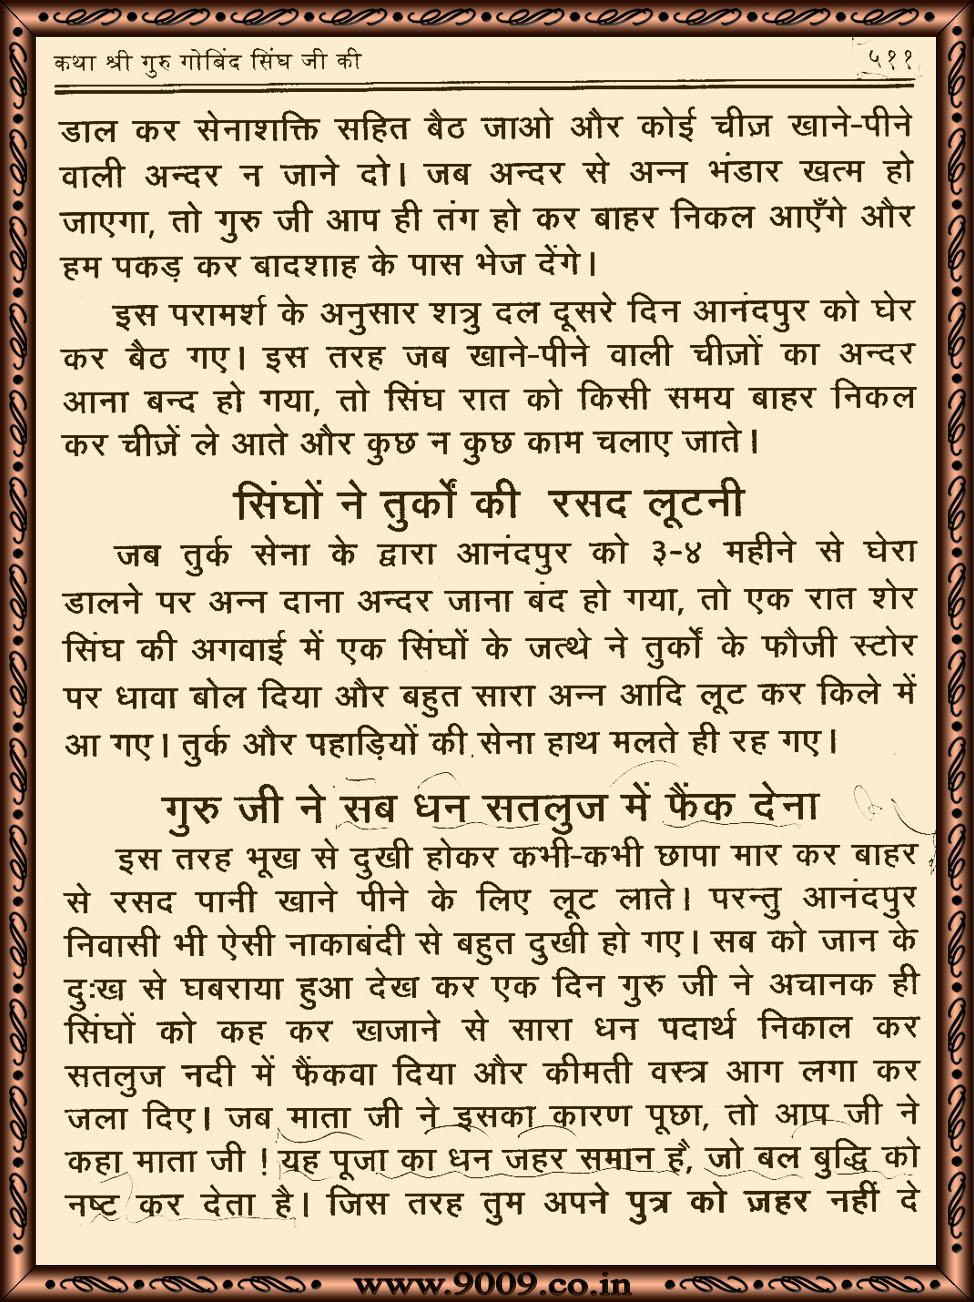 कथा श्री गुरु गोबिंद सिंघ जी की ५११
डाल कर सेनाशक्ति सहित बैठ जाओ और कोई चीज़ खाने-पीने
वाली अन्दर न जाने दो। जब अन्दर से अन्न भंडार खत्म हो
जाएगा, तो गुरु जी आप ही तंग हो कर बाहर निकल आएँगे और
हम पकड़ कर बादशाह के पास भेज देंगे।
इस परामर्श के अनुसार शत्रु दल दूसरे दिन आनंदपुर को घेर
कर बैठ गए। इस तरह जब खाने-पीने वाली चीज़ों का अन्दर
आना बन्द हो गया, तो सिंघ रात को किसी समय बाहर निकल
कर चीज़ें ले आते और कुछ न कुछ काम चलाए जाते।
सिंघों ने तुर्कों की रसद लूटनी
जब तुर्क सेना के द्वारा आनंदपुर को ३-४ महीने से घेरा
डालने पर अन्न दाना अन्दर जाना बंद हो गया, तो एक रात शेर
सिंघ की अगवाई में एक सिंघों के जत्थे ने तुर्कों के फौजी स्टोर
पर धावा बोल दिया और बहुत सारा अन्न आदि लूट कर किले में
आ गए। तुर्क और पहाड़ियों की सेना हाथ मलते ही रह गए।
गुरु जी ने सब धन सतलुज में फैंक देना
इस तरह भूख से दुखी होकर कभी-कभी छापा मार कर बाहर
से रसद पानी खाने पीने के लिए लूट लाते। परन्तु आनंदपुर
निवासी भी ऐसी नाकाबंदी से बहुत दुखी हो गए। सब को जान के
दुःख से घबराया हुआ देख कर एक दिन गुरु जी ने अचानक ही
सिंघों को कह कर खजाने से सारा धन पदार्थ निकाल कर
सतलुज नदी में फैंकवा दिया और कीमती वस्त्र आग लगा कर
जला दिए। जब माता जी ने इसका कारण पूछा, तो आप जी ने
कहा माता जी ! यह पूजा का धन जहर समान है, जो बल बुद्धि को
नष्ट कर देता है। जिस तरह तुम अपने पुत्र को ज़हर नहीं दे
www.9009.co.in